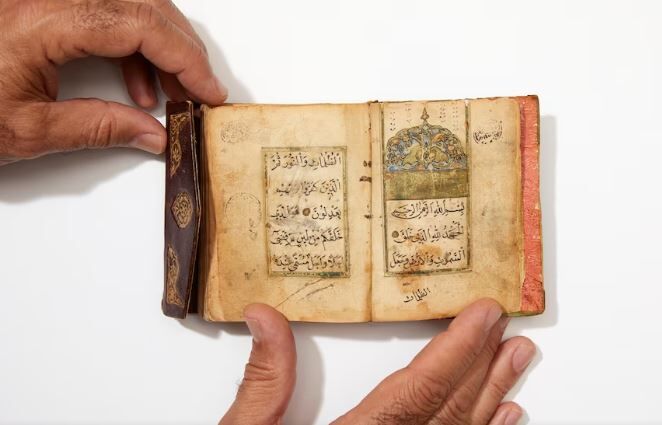 بسم الله الرحمن الرحيم
الحمد لله الذي خلق
السموات والارض وجعل
الظلمات
الظلمات والنور ثم
الذين كفروا بربهم
يعدلون هو الذي
خلقكم من طين ثم قضى
اجلا واجل مسمى عنده